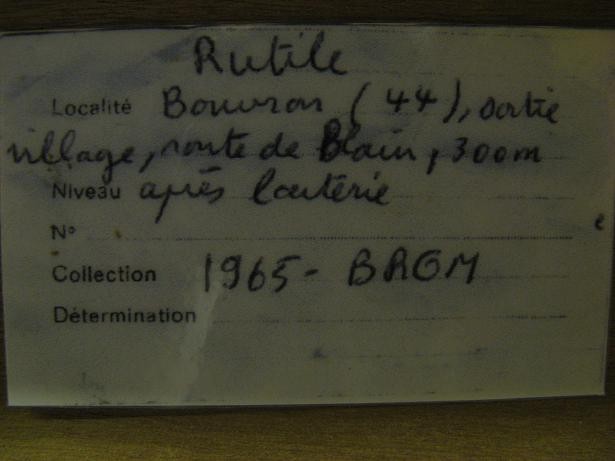 Rutile
Localité Bouvron (44), sortie
village, route de Blain, 300m
Niveau après laiterie
N°
Collection 1965 - BRGM
Détermination